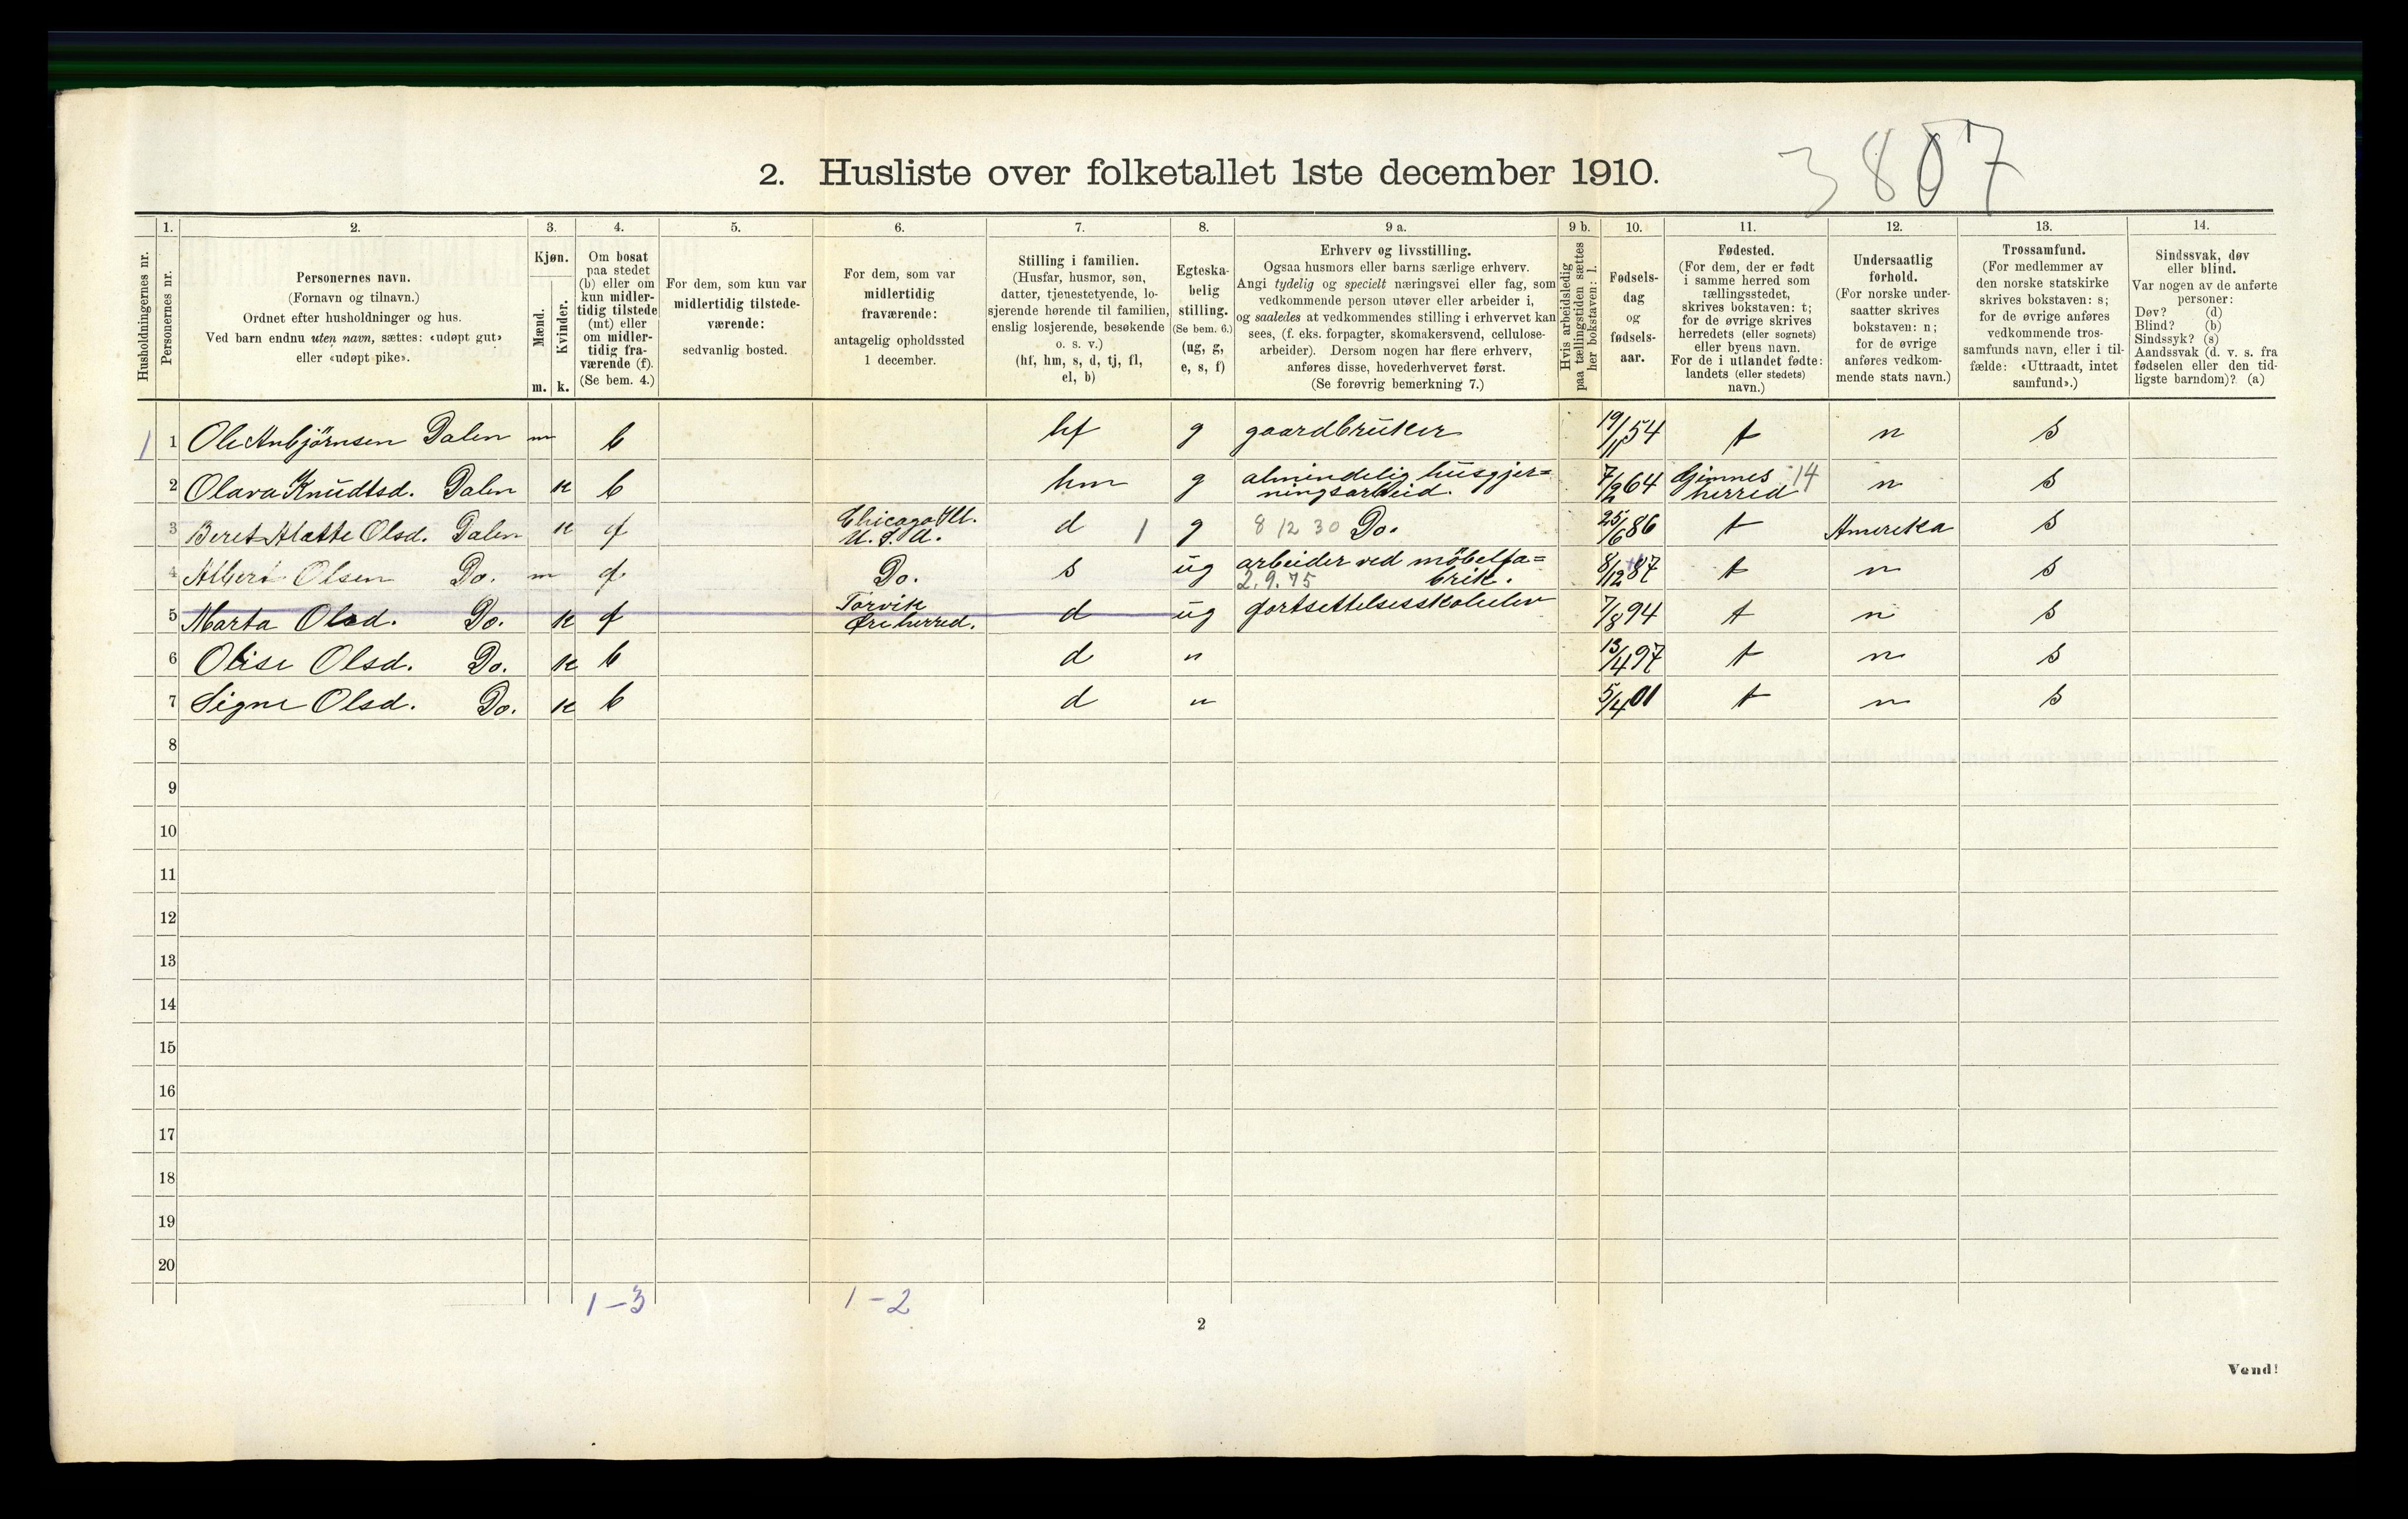 3807
2. Husliste over folketallet 1ste december 1910.
Husholdningernes nr.
1.
Personernes nr.
2.
Personernes navn.
(Fornavn og tilnavn.)
Ordnet efter husholdninger og hus.
Ved barn endnu uten navn, sættes: «udøpt gut»
eller «udøpt pike».
3.
Kjøn.
Mænd.
Kvinder.
m. k.
4.
Om bosat
paa stedet
(b) eller om
kun midler-
tidig tilstede
(mt) eller
om midler-
tidig fra-
værende (f).
(Se bem. 4.)
5.
For dem, som kun var
midlertidig tilstede-
værende:
sedvanlig bosted.
6.
For dem, som var
midlertidig
fraværende:
antagelig opholdssted
1 december.
7.
Stilling i familien.
(Husfar, husmor, søn,
datter, tjenestetyende, lo-
sjerende hørende til familien,
enslig losjerende, besøkende
o. s. v.)
(hf, hm, s, d, tj, fl,
el, b)
8.
Egteska-
belig
stilling.
(Se bem. 6.)
(ug, g,
e, s, f)
9 a.
Erhverv og livsstilling.
Ogsaa husmors eller barns særlige erhverv.
Angi tydelig og specielt næringsvei eller fag, som
vedkommende person utøver eller arbeider i,
og saaledes at vedkommendes stilling i erhvervet kan
sees, (f. eks. forpagter, skomakersvend, cellulose-
arbeider). Dersom nogen har flere erhverv,
anføres disse, hovederhvervet først.
(Se forøvrig bemerkning 7.)
9 b.
Hvis arbeidsledig
paa tællingstiden sættes
her bokstaven: l.
10.
Fødsels-
dag
og
fødsels-
aar.
11.
Fødested.
(For dem, der er født
i samme herred som
tællingsstedet,
skrives bokstaven: t;
for de øvrige skrives
herredets (eller sognets)
eller byens navn.
For de i utlandet fødte:
landets (eller stedets)
navn.)
12.
Undersaatlig
forhold.
(For norske under-
saatter skrives
bokstaven: n;
for de øvrige
anføres vedkom-
mende stats navn.)
13.
Trossamfund.
(For medlemmer av
den norske statskirke
skrives bokstaven: s;
for de øvrige anføres
vedkommende tros-
samfunds navn, eller i til-
fælde: «Uttraadt, intet
samfund».)
14.
Sindssvak, døv
eller blind.
Var nogen av de anførte
personer:
Døv? (d)
Blind? (b)
Sindssyk? (s)
Aandssvak (d. v. s. fra
fødselen eller den tid-
ligste barndom)? (a)
1 1 Ole Anbjörnsen Dalen m b hf g gaardbruker 19/11 54 t n s
2 Olava Knudtsd. Dalen k b hm g almindelig husgjer=
ningsarbeid. 7/2 64 Gjimnes 14
herred n s
3 Beret Olsd. Dalen k f Chicago Ill.
U. S. A. d 1 g 8 12 30 Do. 25/6 86 t Amerika s
4 Albert Olsen Do. m f Do. s ug arbeider ved möbelfa=
2.9.75 brik. 8/12 87 t n s
5 Marta Olsd. Do. k f Torvik
Øre herred. d ug fortsettelsesskoleelev 7/8 94 t n s
6 Olise Olsd. Do. k b d " 13/4 97 t n s
7 Signe Olsd. Do. k b d " 5/4 01 t n s
8
9
10
11
12
13
14
15
16
17
18
19
20
1-3 1-2
2
Vend!